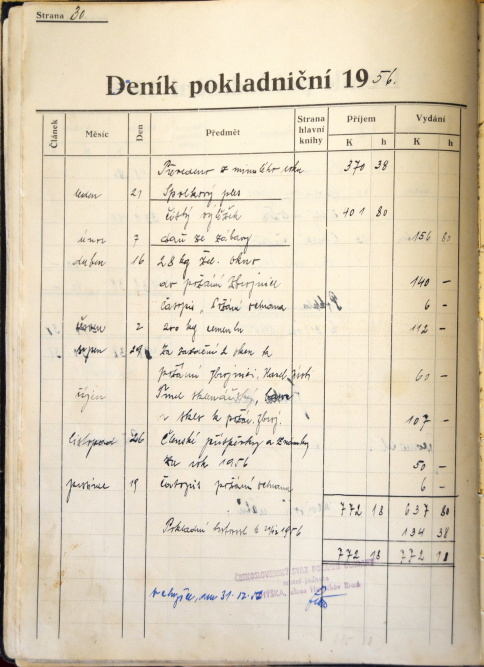 Strana 30
Deník pokladniční 1956.
Článek Měsíc Den Předmět Strana hlavní knihy Příjem K h Vydání K h
Převedeno z minulého roku 370 38
leden 21 Spolkový ples
čistý výtěžek 401 80
únor 7 daň ze zábavy 156 80
duben 16 28 kg žel. oken
do požární zbrojnice 140 –
časopis „Požární ochrana 6 –
červen 2 200 kg cementu 112 –
srpen 29 Za zasazení 2 oken k
požární zbrojnici, Karel 60 –
říjen Tmel sklenářský,
sklo k požár. zbroj. 107 –
listopad 26 Členské příspěvky a známky
za rok 1956 50 –
prosinec 19 časopis požární ochrana 6 –
772 18 637 80
Pokladní hotovost k 1956 134 38
772 18 772 18
ČESKOSLOVENSKÝ SVAZ POŽÁRNÍ OCHRANY
31.12.56